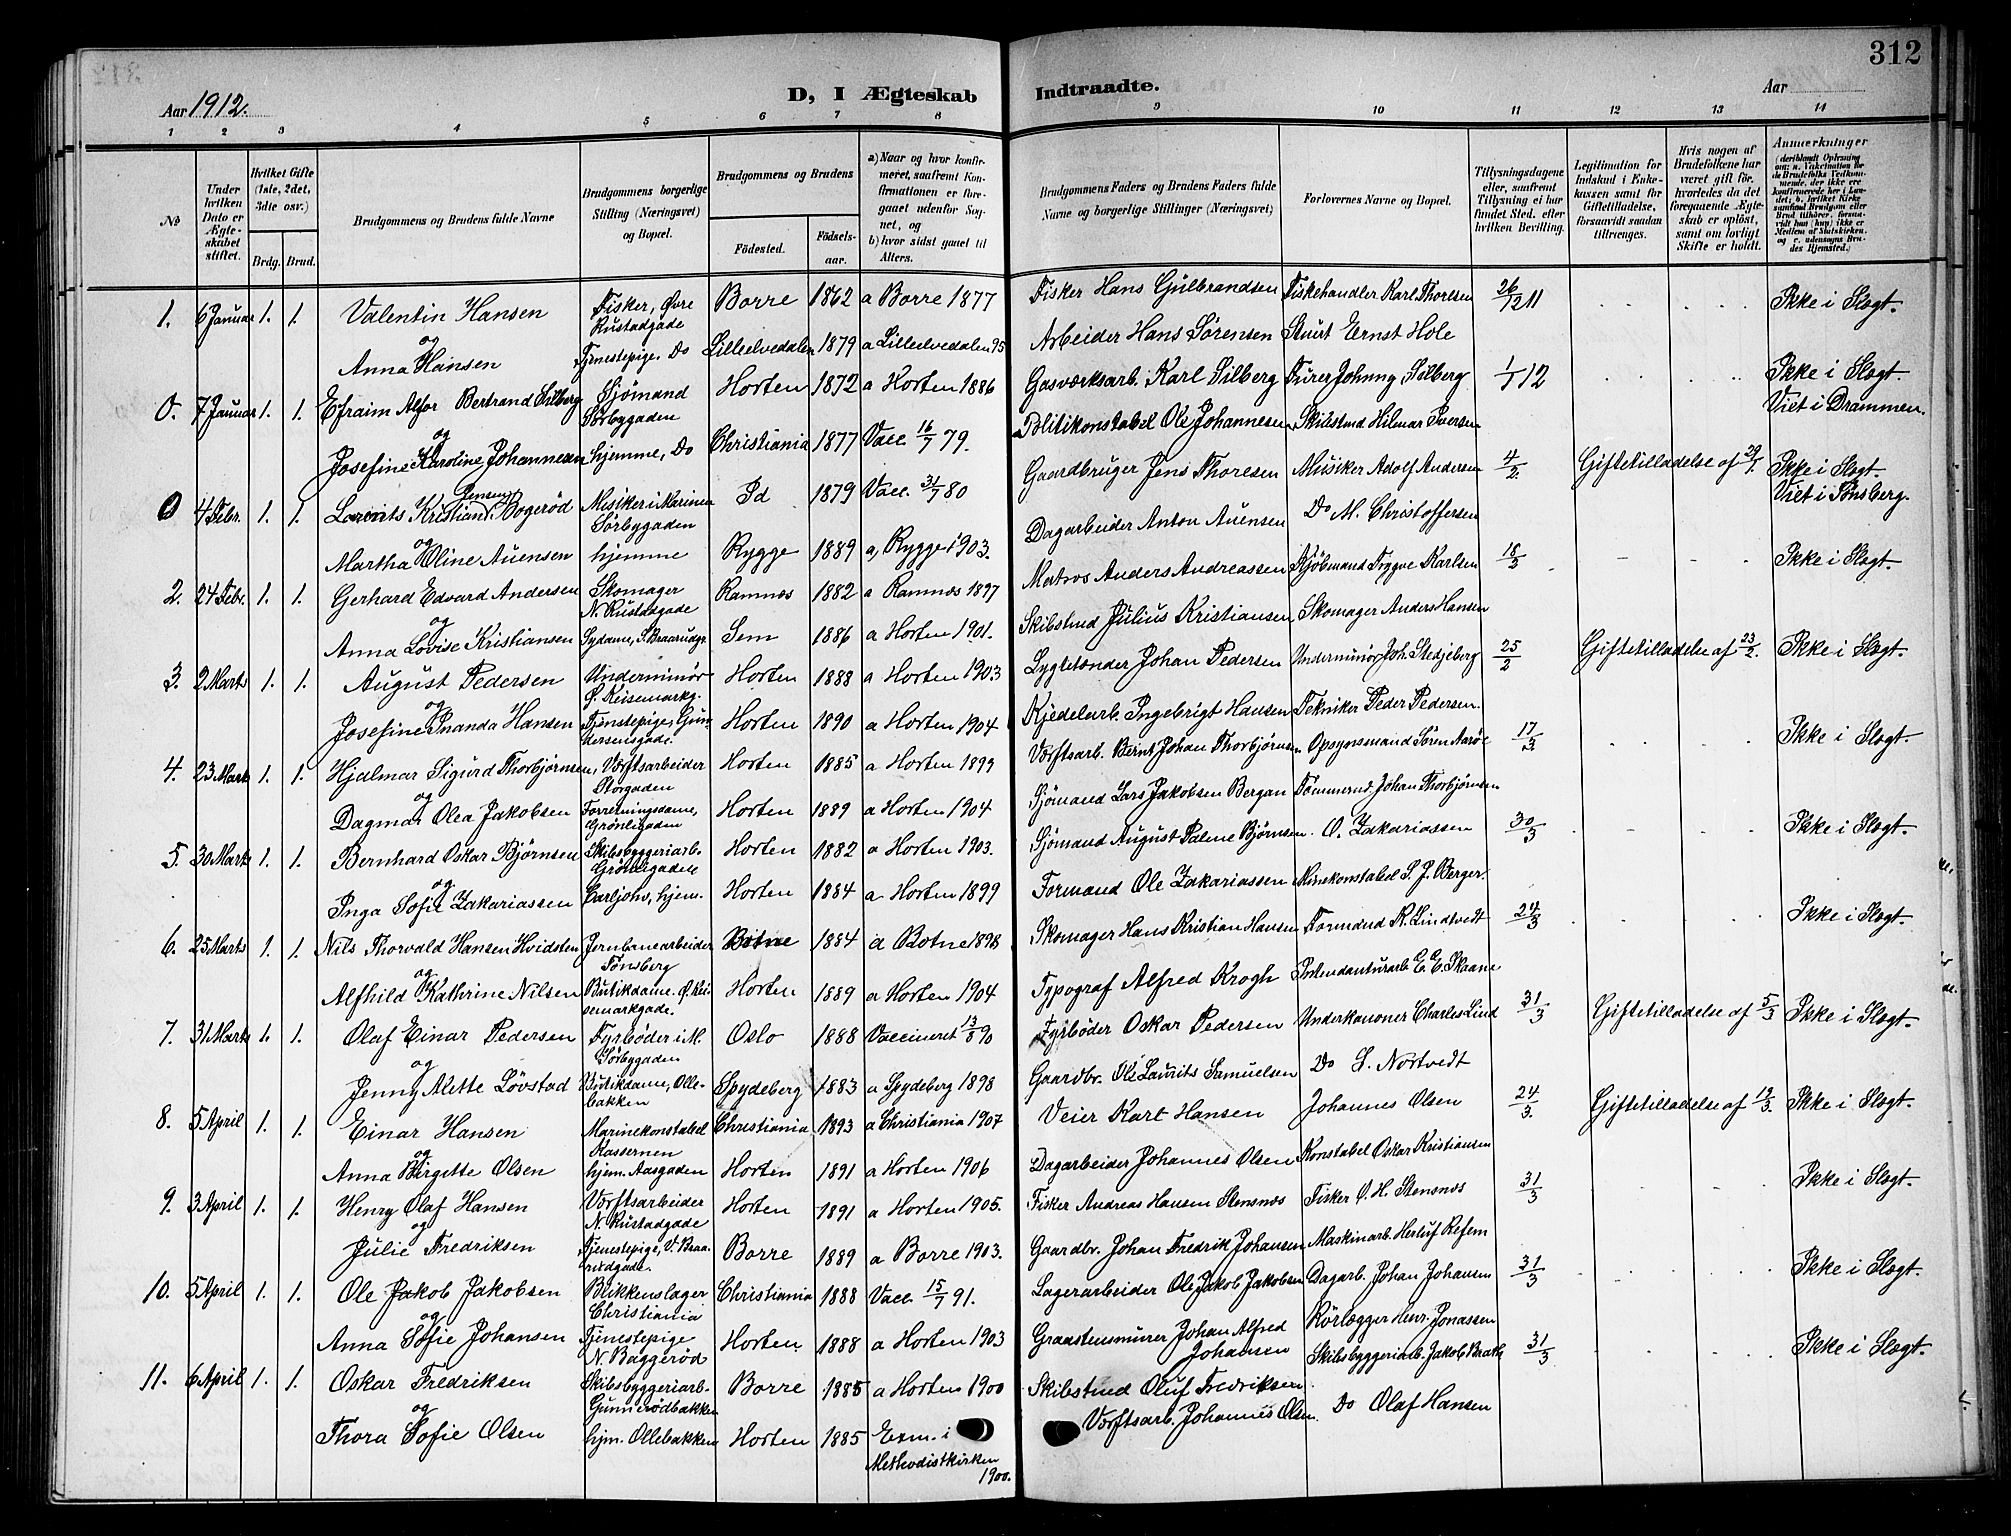 312
Aar 1912.
D, I Ægteskab Indtraadte.
Aar
1 2 3 4 5 6 7 8 9 10 11 12 13 14
No
Under hvilken Dato er Ægteskabet stiftet.
Hvilket Gifte (1ste, 2det, 3die osv.)
Brdg. Brud.
Brudgommens og Brudens fulde Navne
Brudgommens borgerlige Stilling (Næringsvei) og Bopæl.
Brudgommens og Brudens
Fødested. Fødselsaar.
a) Naar og hvor konfirmeret, saafremt Konfirmationen er foregaaet udenfor Sognet, og
b) hvor sidst gaaet til Alters.
Brudgommens Faders og Brudens Faders fulde Navne og borgerlige Stillinger (Næringsvei)
Forlovernes Navne og Bopæl.
Tillysningsdagene eller, saafremt Tillysning ei har fundet Sted, efter hvilken Bevilling.
Legitimation for Indskud i Enkekassen samt for Giftetilladelse, forsaavidt saadan tiltrænges.
Hvis nogen af Brudefolkene har været gift før, hvorledes da det foregaaende Ægteskab er opløst, samt om lovligt Skifte er holdt.
Anmerkninger
1. 6 Januar 1. 1. Valentin Hansen Fisker, Øvre Rustadgade Borre 1862 a Borre 1877 Fisker Hans Gulbrandsen Fiskehandler Karl Thoresen 26/12 11 Ikke i Slægt.
og
Anna Hansen Tjenestepige, Do Lilleelvedalen 1879 a Lilleelvedalen 95 Arbeider Hans Sørensen Stuert Ernst Hole
0. 7 Januar 1. 1. Efraim Alfor Bertrand Silberg Sjømand Sørbygaden Horten 1872 a Horten 1886 Gasværksarb. Karl Silberg Furer Johnny Silberg 1/1 12 Ikke i Slægt. Viet i Drammen.
og
Josefine Karoline Johannesen hjemme, Do Christiania 1877 Vacc. 16/7 79. Politikonstabel Ole Johannesen Skibstmd Hilmar Iversen
0 4 Febr. 1. 1. Laurits Kristian Jensen Bogerød Musiker i Marinen Sørbygaden Id 1879 Vacc. 31/7 80 Gaardbruger Jens Thoresen Musiker Adolf Andersen 4/2. Giftetilladelse af 29/1. Ikke i Slægt. Viet i Tønsberg.
og
Martha Oline Auensen hjemme Rygge 1889 a, Rygge 1903. Dagarbeider Anton Auensen Do M. Christoffersen
2. 24 Febr. 1. 1. Gerhard Edvard Andersen Skomager N. Rustadgade Ramnæs 1882 a Ramnæs 1897 Matros Anders Andreassen Kjøbmand Trygve Karlsen 18/2 Ikke i Slægt.
og
Anna Lovise Kristiansen Sydame, S. Braarudgt. Sem 1886 a Horten 1901. Skibstmd Julius Kristiansen Skomager Anders Hansen
3. 2 Marts 1. 1. August Pedersen Underminør Ø. Keisemarkg. Horten 1888 a Horten 1903 Lygtetænder Johan Pedersen Underminør Joh. Stedjeberg 25/2 Giftetilladelse af 23/2. Ikke i Slægt.
og
Josefine Inanda Hansen Tjenstepige, Gundersensgade. Horten 1890 a Horten 1904 Kjedelarb. Ingebrigt Hansen Tekniker Peder Pedersen.
4. 23 Marts 1. 1. Hjalmar Sigurd Thorbjørnsen, Værftsarbeider Storgaden Horten 1885 a Horten 1899 Værftsarb. Bernt Johan Thorbjørnsen Opsynsmand Søren Aarøe 17/3 Ikke i Slægt.
og
Dagmar Olea Jakobsen Forretningsdame, Grønligaden Horten 1889 a Horten 1904 Sjømand Lars Jakobsen Bergan Tømmermd Johan Thorbjørnsen
5. 30 Marts 1. 1. Bernhard Oskar Bjørnsen Skibsbyggeriarb. Grønligaden Horten 1882 a Horten 1903. Sjømand August Palme Bjørnsen O. Zakariassen 30/3 Ikke i Slægt.
og
Inga Sofie Zakariassen Carljohv, hjem. Horten 1884 a Horten 1899 Formand Ole Zakariassen Minekonstabel S. J. Berger
6. 25 Marts 1. 1. Nils Thorvald Hansen Hvidsten Jernbanearbeider Tønsberg Botne 1884 a Botne 1898 Skomager Hans Kristian Hansen Formand K. Lindtvedt 24/3 Ikke i Slægt.
og
Alfhild Kathrine Nilsen Butikdame. Ø. Keisemarkgade. Horten 1889 a Horten 1904 Typograf Alfred Krogh Intendanturarb. E. E. Skaane
7. 31 Marts 1. 1. Olaf Einar Pedersen Fyrbøder i M. Sørbygaden Oslo 1888 Vaccineret 13/8 90 Fyrbøder Oskar Pedersen Underkanoner Charles Lind 31/3 Giftetilladelse af 5/3 Ikke i Slægt.
og
Jenny Alette Løvstad Butikdame, Ollebakken Spydeberg 1883 a Spydeberg 1898 Gaardbr. Ole Laurits Samuelsen Do L. Nortvedt
8. 5 April 1. 1. Einar Hansen Marinekonstabel Kassernen Christiania 1893 a Christiania 1907 Veier Karl Hansen Johannes Olsen 24/3. Giftetilladelse af 19/3. Ikke i Slægt.
og
Anna Birgitte Olsen hjem. Aasgaden Horten 1891 a Horten 1906 Dagarbeider Johannes Olsen Konstabel Oskar Kristiansen
9. 3 April 1. 1. Henry Olaf Hansen Værftsarbeider N. Rustadgade Horten 1891 a Horten 1905. Fisker Andreas Hansen Stensnæs Fisker O. H. Stensnæs 31/3 Ikke i Slægt.
og
Julie Fredriksen Tjenestepige, V. Braarudgade. Borre 1889 a Borre 1903. Gaardbr. Johan Fredrik Johansen Maskinarb. Herluf Refem
10. 5 April 1. 1. Ole Jakob Jakobsen Blikkenslager Christiania Christiania 1888 Vacc. 15/7 91. Lagerarbeider Ole Jakob Jakobsen Dagarb. Johan Johansen 31/3 Ikke i Slægt.
og
Anna Sofie Johansen Tjenestepige N. Baggerød Horten 1888 a Horten 1903 Graastensmurer Johan Alfred Johansen Rørlægger Henr. Jonassen
11. 6 April 1. 1. Oskar Fredriksen Skibsbyggeriarb. Gunnerødbakken Borre 1885 a Horten 1900 Skibstmd Oluf Fredriksen Skibsbyggeriarb. Jakob Brath 31/3 Ikke i Slægt.
og
Thora Sofie Olsen hjm. Ollebakken Horten 1885 Exm. i Methodistkirken 1900. Værftsarb. Johannes Olsen Do Olaf Hansen